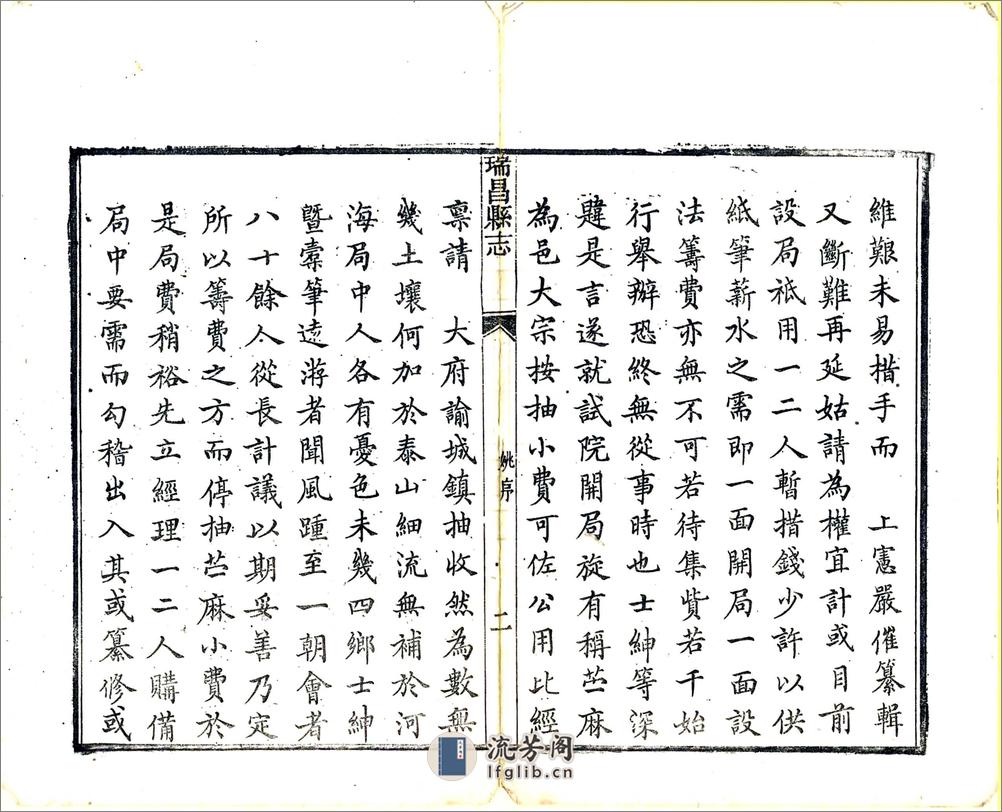 維艱未易措手而　上憲嚴催纂輯
又斷難再延姑請為權宜計或目前
設局祇用一二人暫措錢少許以供
紙筆薪水之需即一面開局一面設
法籌費亦無不可若待集貲若干始
行舉辦恐終無從事時也士紳等深
韙是言遂就試院開局旋有稱苎麻
為邑大宗按抽小費可佐公用比經
瑞昌縣志
姚序
二
稟請　大府諭城鎮抽收然為數無
幾土壤何加於泰山細流無補於河
海局中人各有憂色未幾四鄉士紳
暨橐筆遠游者聞風踵至一朝會者
八十餘人從長計議以期妥善乃定
所以籌費之方而停抽苎麻小費於
是局費稍裕先立經理一二人購備
局中要需而勾稽出入其或纂修或
流芳阁
lfglib.cn